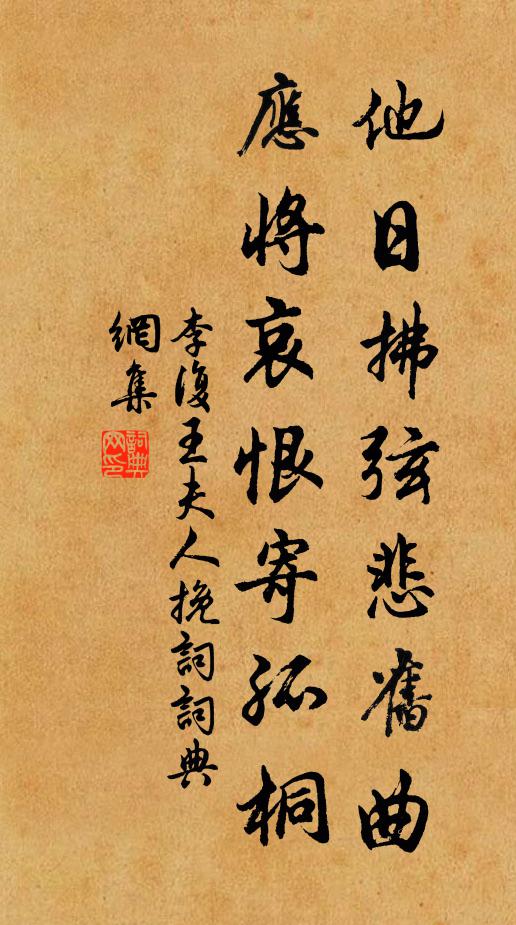 他日拂弦悲舊曲
應將哀恨寄孤桐
李復王夫人挽詞詞典
網集
詞典
网印